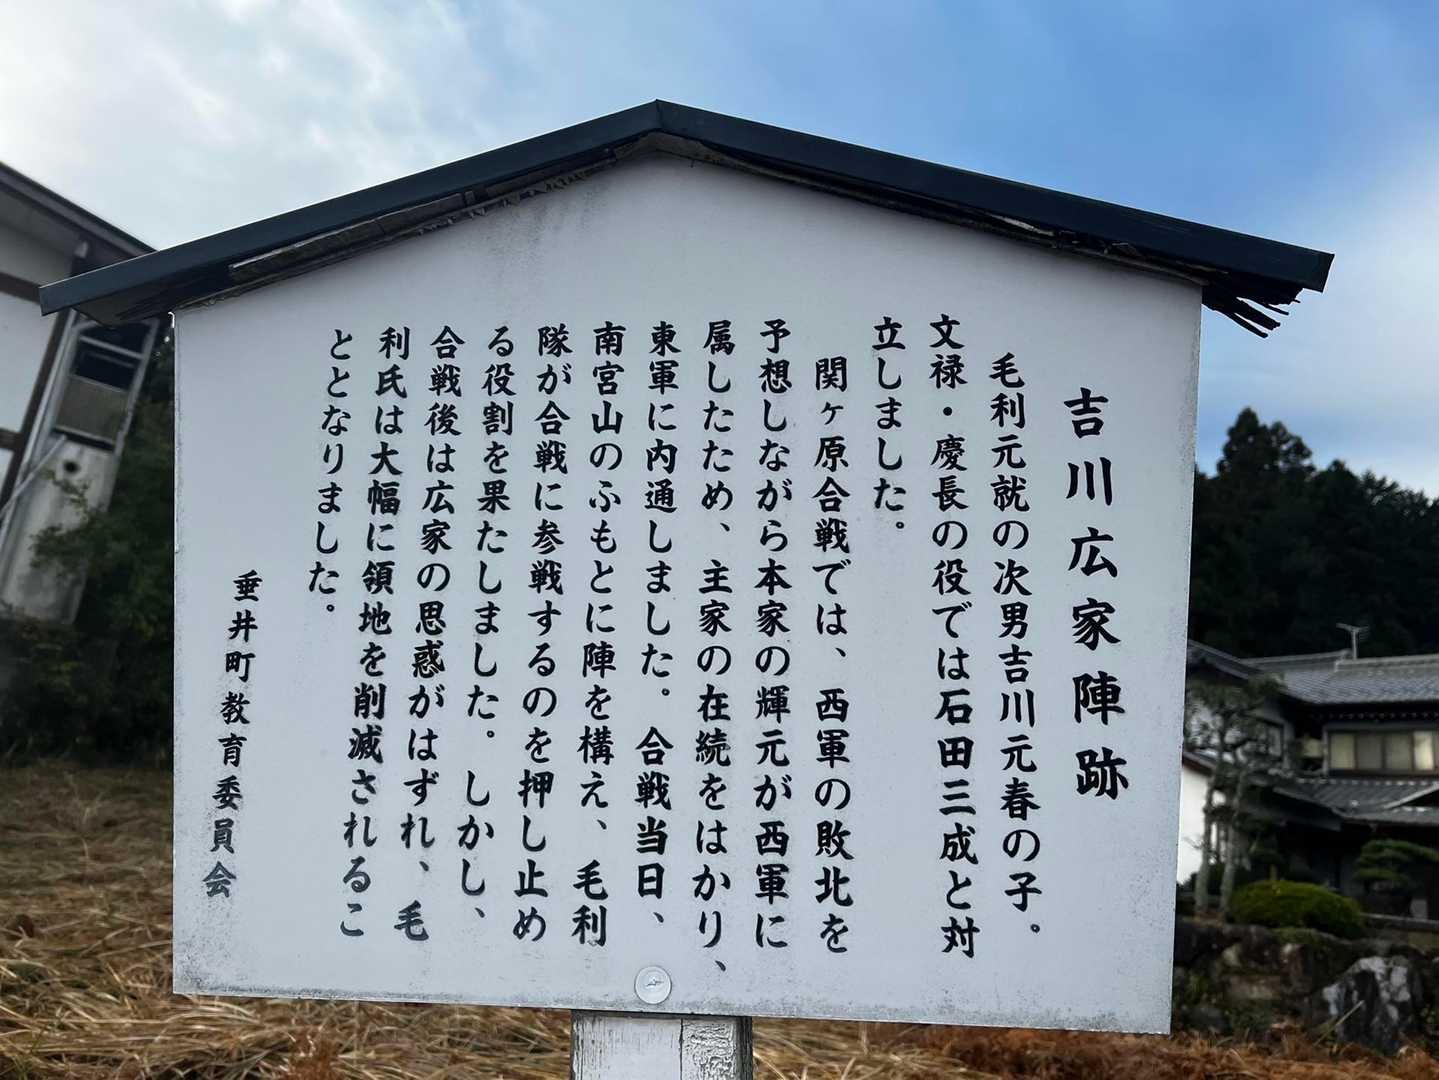 吉川広家陣跡
毛利元就の次男吉川元春の子。
文禄・慶長の役では石田三成と対
立しました。
関ヶ原合戦では、西軍の敗北を
予想しながら本家の輝元が西軍に
属したため、主家の在続をはかり、
東軍に内通しました。合戦当日、
南宮山のふもとに陣を構え、毛利
隊が合戦に参戦するのを押し止め
る役割を果たしました。しかし、
合戦後は広家の思惑がはずれ、毛
利氏は大幅に領地を削減されるこ
ととなりました。
垂井町教育委員会